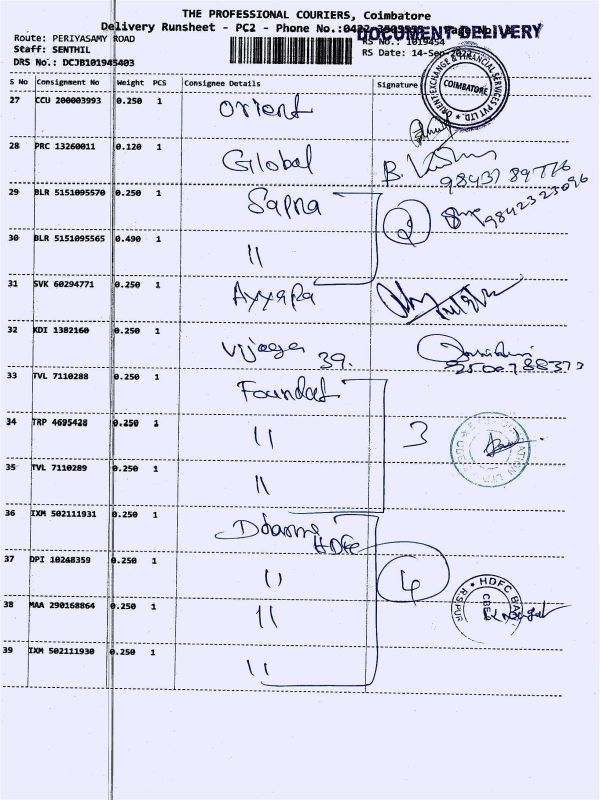 THE PROFESSIONAL COURIERS, Coimbatore
Delivery Runsheet - PC2 - Phone No.:0422
DOCUMENT DELIVERY
Route: PERIYASAMY ROAD
RS No.: 1019454
Staff: SENTHIL
RS Date: 14-Sep
DRS No.: DCJB101945403
S No Consignment No Weight PCS Consignee Details Signature
ORIENT EXCHANGE & FINANCIAL SERVICES PVT LTD.
COIMBATORE
27 CCU 200003993 0.250 1 Orient
28 PRC 13260011 0.120 1 Global
29 BLR 5151095570 0.250 1 Sapna
2
9842323096
30 BLR 5151095565 0.490 1 "
31 SVK 60294771 0.250 1 Ayyapa
32 KDI 1382160 0.250 1 Vijaya 39.
33 TVL 7110288 0.250 1 Foundat
34 TRP 4695428 0.250 1 "
3
35 TVL 7110289 0.250 1 "
36 IXM 502111931 0.250 1
HDFC
37 DPI 10248359 0.250 1 "
4
38 MAA 290168864 0.250 1 "
HDFC BANK
R.S.PUR
CBE
39 IXM 502111930 0.250 1 "